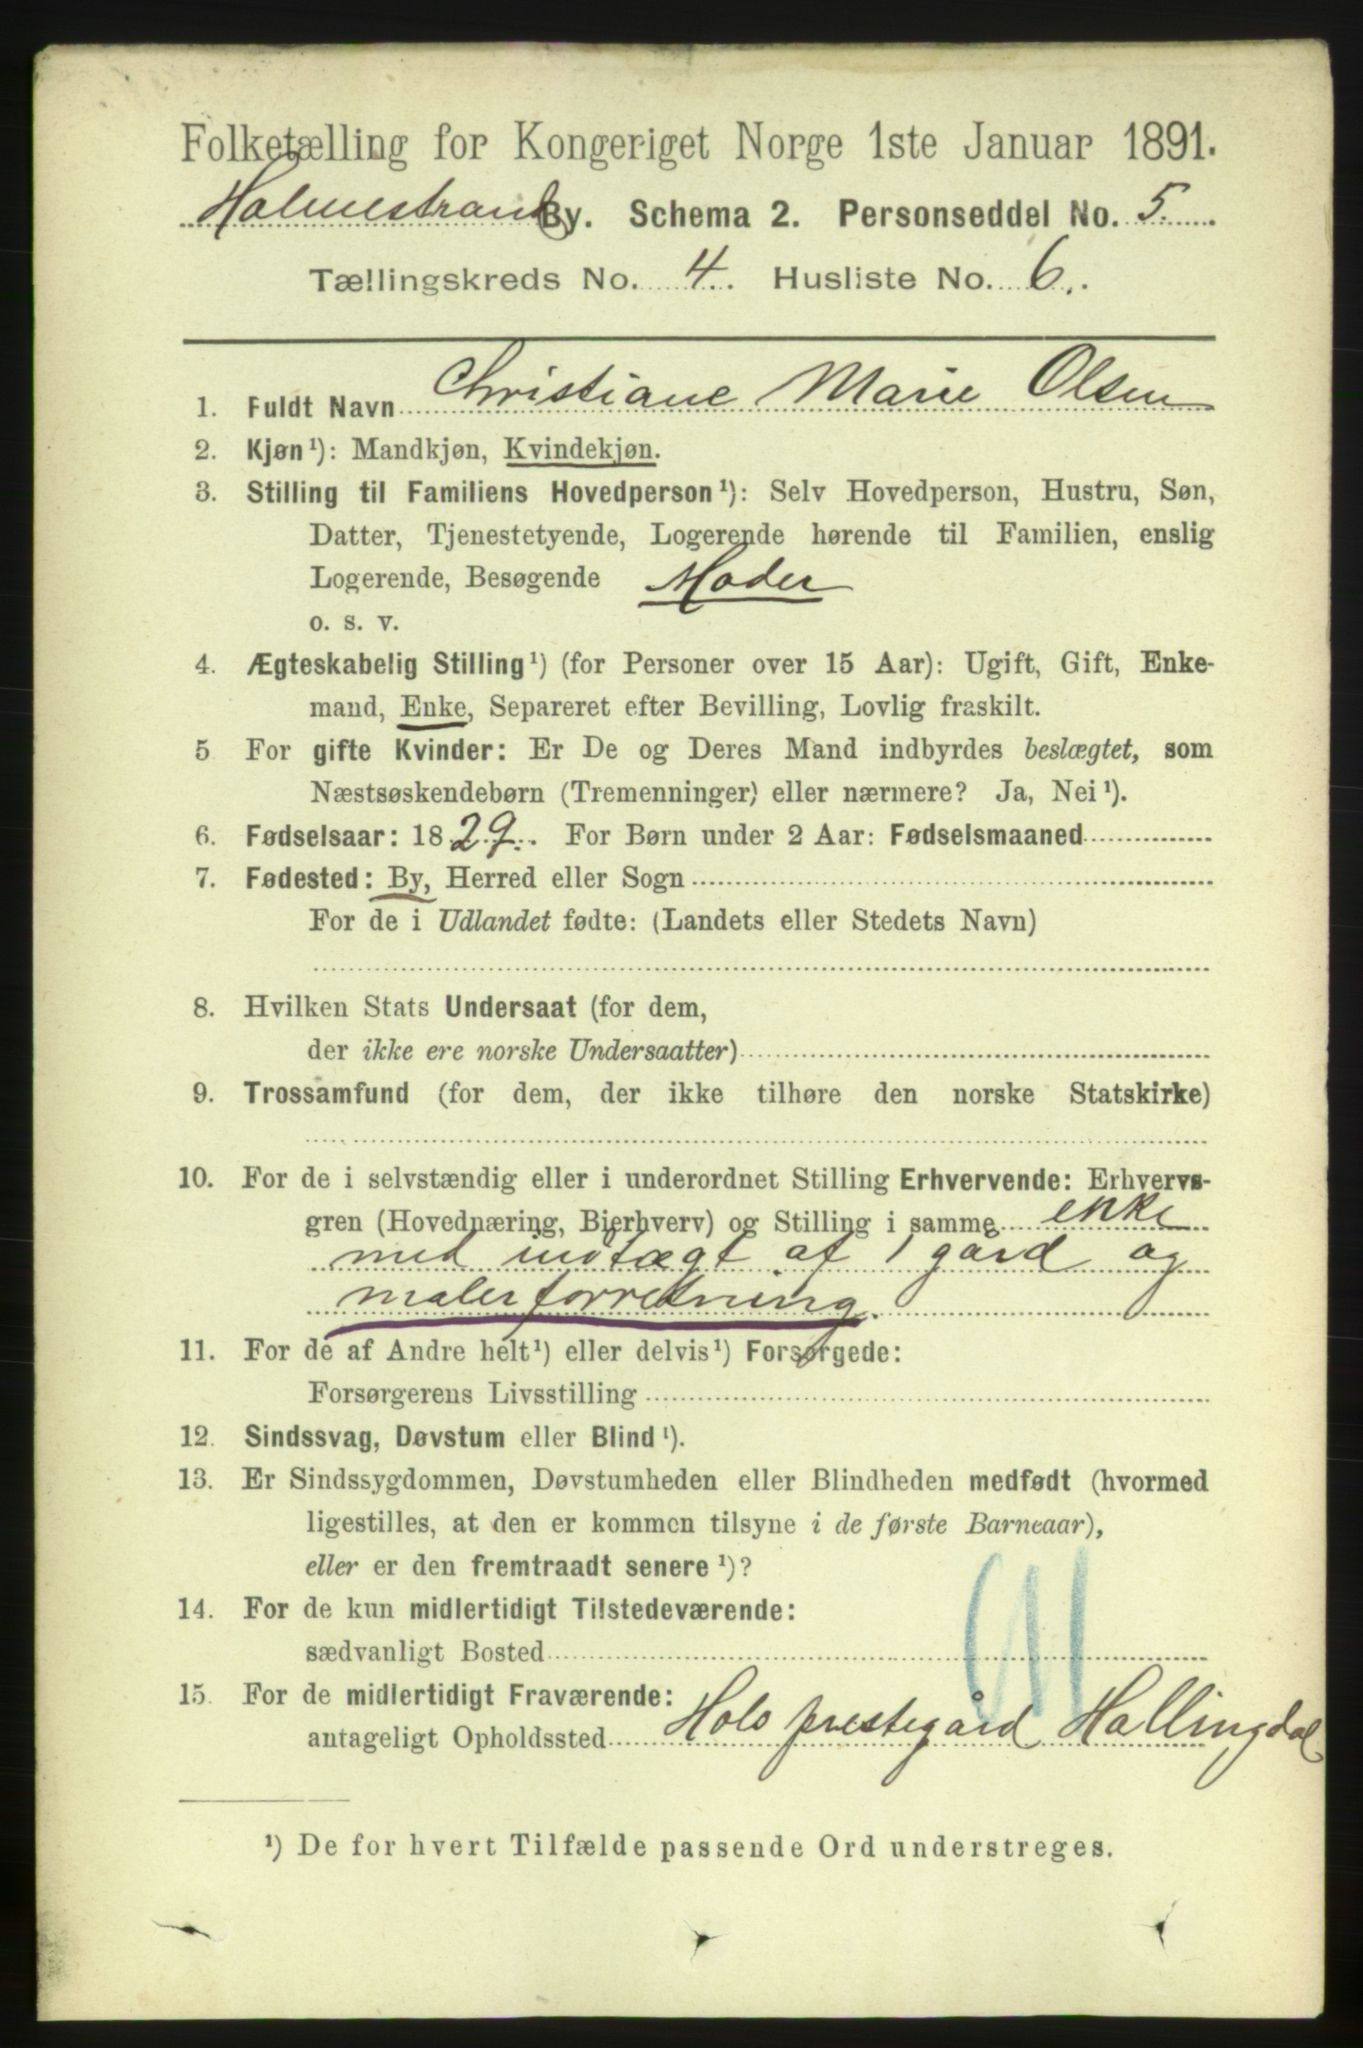 Folketælling for Kongeriget Norge 1ste Januar 1891.
Holmestrand By. Schema 2. Personseddel No. 5.
Tællingskreds No. 4. Husliste No. 6.
1. Fuldt Navn Christiane Marie Olsen
2. Kjøn¹): Mandkjøn, Kvindekjøn.
3. Stilling til Familiens Hovedperson¹): Selv Hovedperson, Hustru, Søn,
Datter, Tjenestetyende, Logerende hørende til Familien, enslig
Logerende, Besøgende Moder
o. s. v.
4. Ægteskabelig Stilling¹) (for Personer over 15 Aar): Ugift, Gift, Enke-
mand, Enke, Separeret efter Bevilling, Lovlig fraskilt.
5 For gifte Kvinder: Er De og Deres Mand indbyrdes beslægtet, som
Næstsøskendebørn (Tremenninger) eller nærmere? Ja, Nei¹).
6. Fødselsaar: 1829. For Børn under 2 Aar: Fødselsmaaned
7. Fødested: By, Herred eller Sogn
For de i Udlandet fødte: (Landets eller Stedets Navn)
8. Hvilken Stats Undersaat (for dem,
der ikke ere norske Undersaatter)
9. Trossamfund (for dem, der ikke tilhøre den norske Statskirke)
10. For de i selvstændig eller i underordnet Stilling Erhvervende: Erhvervs-
gren (Hovednæring, Bierhverv) og Stilling i samme enke
med indtægt af 1 gård og
malerforretning.
11. For de af Andre helt¹) eller delvis¹) Forsørgede:
Forsørgerens Livsstilling
12. Sindssvag, Døvstum eller Blind¹).
13. Er Sindssygdommen, Døvstumheden eller Blindheden medfødt (hvormed
ligestilles, at den er kommen tilsyne i de første Barneaar),
eller er den fremtraadt senere¹)?
14. For de kun midlertidigt Tilstedeværende:
sædvanligt Bosted
15. For de midlertidigt Fraværende:
antageligt Opholdssted Hols prestegård Hallingdal
¹) De for hvert Tilfælde passende Ord understreges.